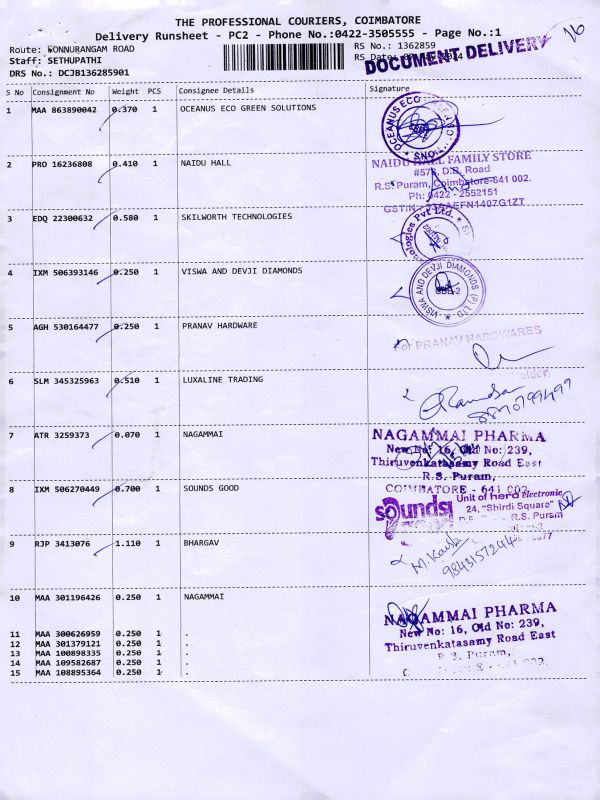 THE PROFESSIONAL COURIERS, COIMBATORE
Delivery Runsheet - PC2 - Phone No.:0422-3505555 - Page No.:1
16
Route: PONNURANGAM ROAD
RS No.: 1362859
Staff: SETHUPATHI
RS Date:
DOCUMENT DELIVERY
DRS No.: DCJB136285901
S No Consignment No Weight PCS Consignee Details Signature
1 MAA 863890042 0.370 1 OCEANUS ECO GREEN SOLUTIONS
OCEANUS ECO
2 PRO 16236808 0.410 1 NAIDU HALL
NAIDU HALL FAMILY STORE
#576, D.B. Road
R.S. Puram, Coimbatore-641 002.
Ph: 0422 - 2552151
GSTIN
3 EDQ 22300632 0.580 1 SKILWORTH TECHNOLOGIES
nologies Pvt Ltd.
4 IXM 506393146 0.250 1 VISWA AND DEVJI DIAMONDS
VISWA AND DEVJI DIAMONDS (P) LTD.
5 AGH 530164477 0.250 1 PRANAV HARDWARE
For PRANAV HARDWARES
6 SLM 345325963 0.510 1 LUXALINE TRADING
7 ATR 3259373 0.070 1 NAGAMMAI
NAGAMMAI PHARMA
New No: 16, Old No: 239,
Thiruvenkatasamy Road East
R.S. Puram,
COIMBATORE - 641 002.
8 IXM 506270449 0.700 1 SOUNDS GOOD
sounds
Unit of hero electronic
24, "Shirdi Square"
R.S. Puram
9 RJP 3413076 1.110 1 BHARGAV
9843157244
10 MAA 301196426 0.250 1 NAGAMMAI
NAGAMMAI PHARMA
New No: 16, Old No: 239,
Thiruvenkatasamy Road East
R.S. Puram,
11 MAA 300626959 0.250 1 .
12 MAA 301379121 0.250 1 .
13 MAA 100898335 0.250 1 .
14 MAA 109582687 0.250 1 .
15 MAA 108895364 0.250 1 .